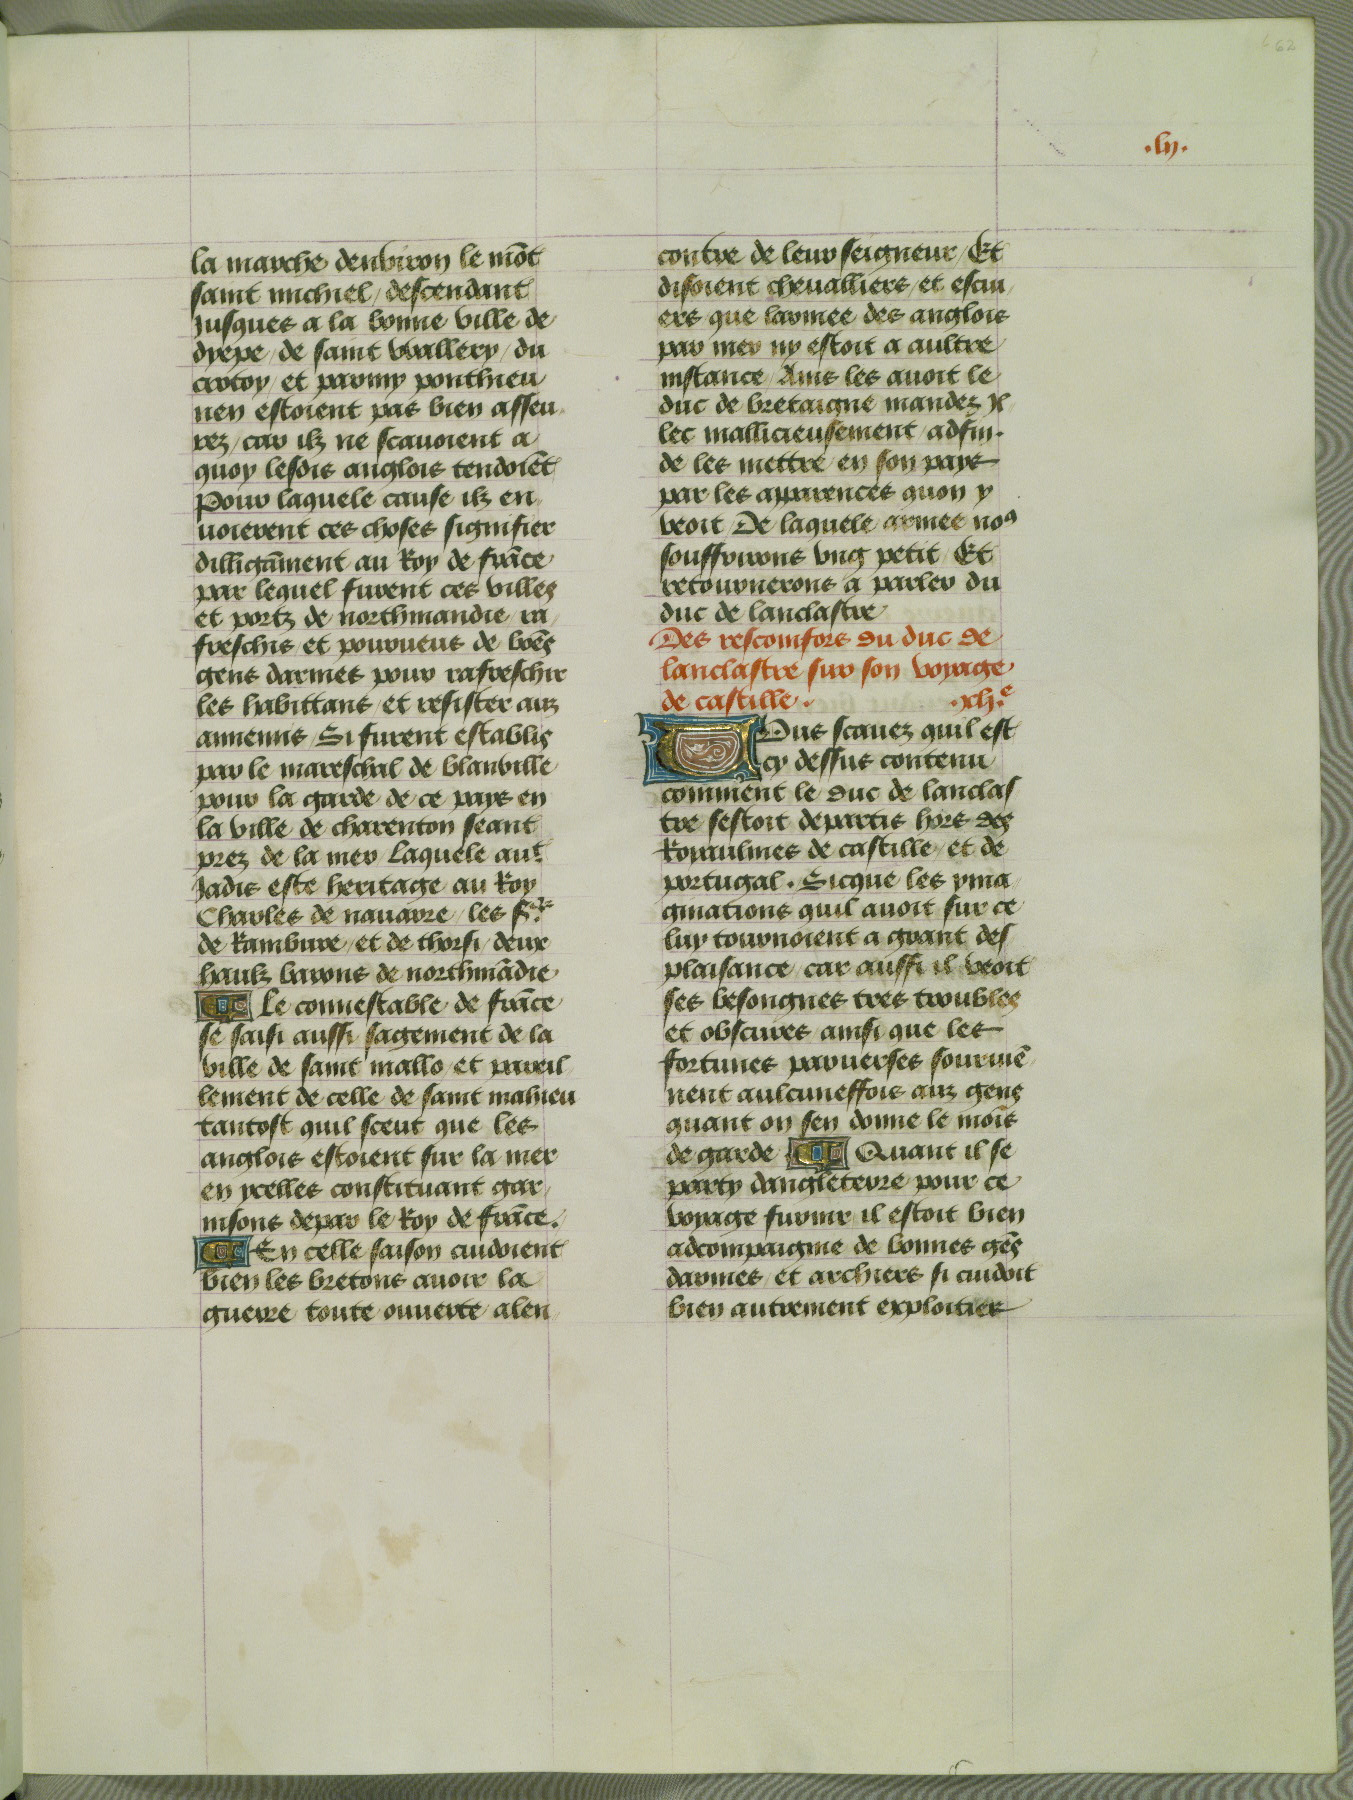 62
·lij·
la marche denviron le mōt
saint michiel / descendant
Jusques a la bonne ville de
dyepe / de saint wallery / du
crotoy / et parmy ponthieu
nen estoient pas bien asseu
rez / car ilz ne scavoient a
quoy lesdis anglois tendoiēt
Pour laquele cause ilz en
voierent ces choses signifier
dilligāment au Roy de frāce
par lequel furent ces villes
et portz de northmandie ra
freschis et pourveus de bōēs
gens darmes pour rafreschir
les habittans et resister aux
annemis / Si furent establis
par le mareschal de blanville
pour la garde de ce pays en
la ville de charenton seant
prez de la mer Laquele avt
Jadis este heritage au Roy
Charles de navarre / les Srs
de Rambure / et de thorsi / deux
haulz barons de northmādie
Le connestable de frāce
se saisi aussi sagement de la
ville de saint mallo et pareil
lement de celle de saint mahieu
tantost quil sceut que les
anglois estoient sur la mer
en ycelles constituant gar
nisons depar le Roy de frāce.
En celle saison cuidoient
bien les bretons avoir la
guerre toute ouverte alen
contre de leur seigneur / Et
disoient chevalliers / et escui
ers que larmee des anglois
par mer ny estoit a aultre
instance / Ains les avoit le
duc de bretaigne mandez yl
lec mallicieusement / adfin
de les mettre en son pays
par les apparences quon y
veoit De laquele armee noꝯ
souffrirons ung petit / Et
retournerons a parler du
duc de lanclastre
Des rescomfors du duc de
lanclastre sur son voyage
de castille. .xlij.e
Vous scavez quil est
cy dessus contenu
comment le duc de lanclas
tre sestoit departis hors des
Royaulmes de castille / et de
portugal. Sicque les yma
ginations quil avoit sur ce
luy tournoient a grant des
plaisance / car aussi il veoit
ses besongnes tres troubles
et obscures ainsi que les
fortunes parverses sourviē
nent aulcuneffois aux gens
quant on sen donne le moīs
de garde Quant il se
party dangleterre pour ce
voyage furnir il estoit bien
adcompaignie de bonnes gēs
darmes / et archiers si cuidoit
bien autrement exploitier